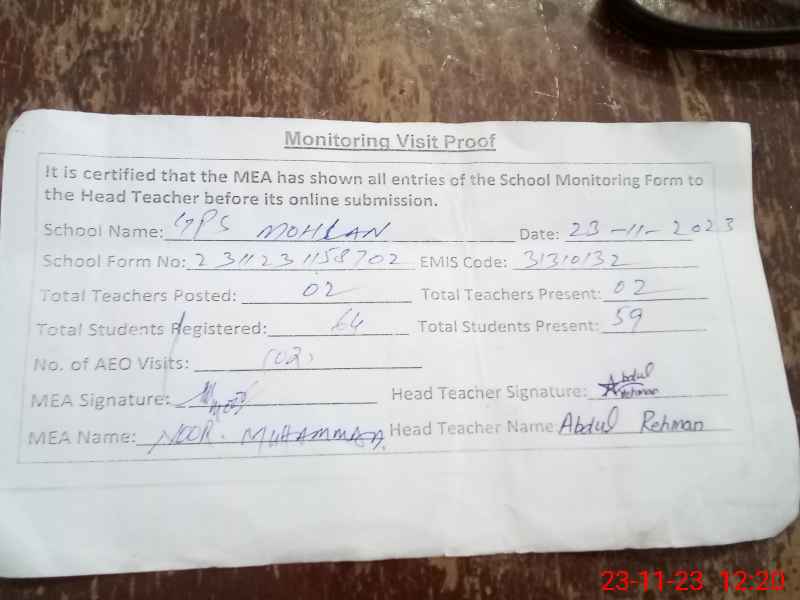 Monitoring Visit Proof
It is certified that the MEA has shown all entries of the School Monitoring Form to
the Head Teacher before its online submission.
School Name: GPS MOHLAN Date: 23-11-2023
School Form No: 2311231158702 EMIS Code: 31310132
Total Teachers Posted: 02 Total Teachers Present: 02
Total Students Registered: 64 Total Students Present: 59
No. of AEO Visits: (02)
MEA Signature: Head Teacher Signature: Abdul Rehman
MEA Name: NOOR. MUHAMMAD. Head Teacher Name: Abdul Rehman
23-11-23 12:20